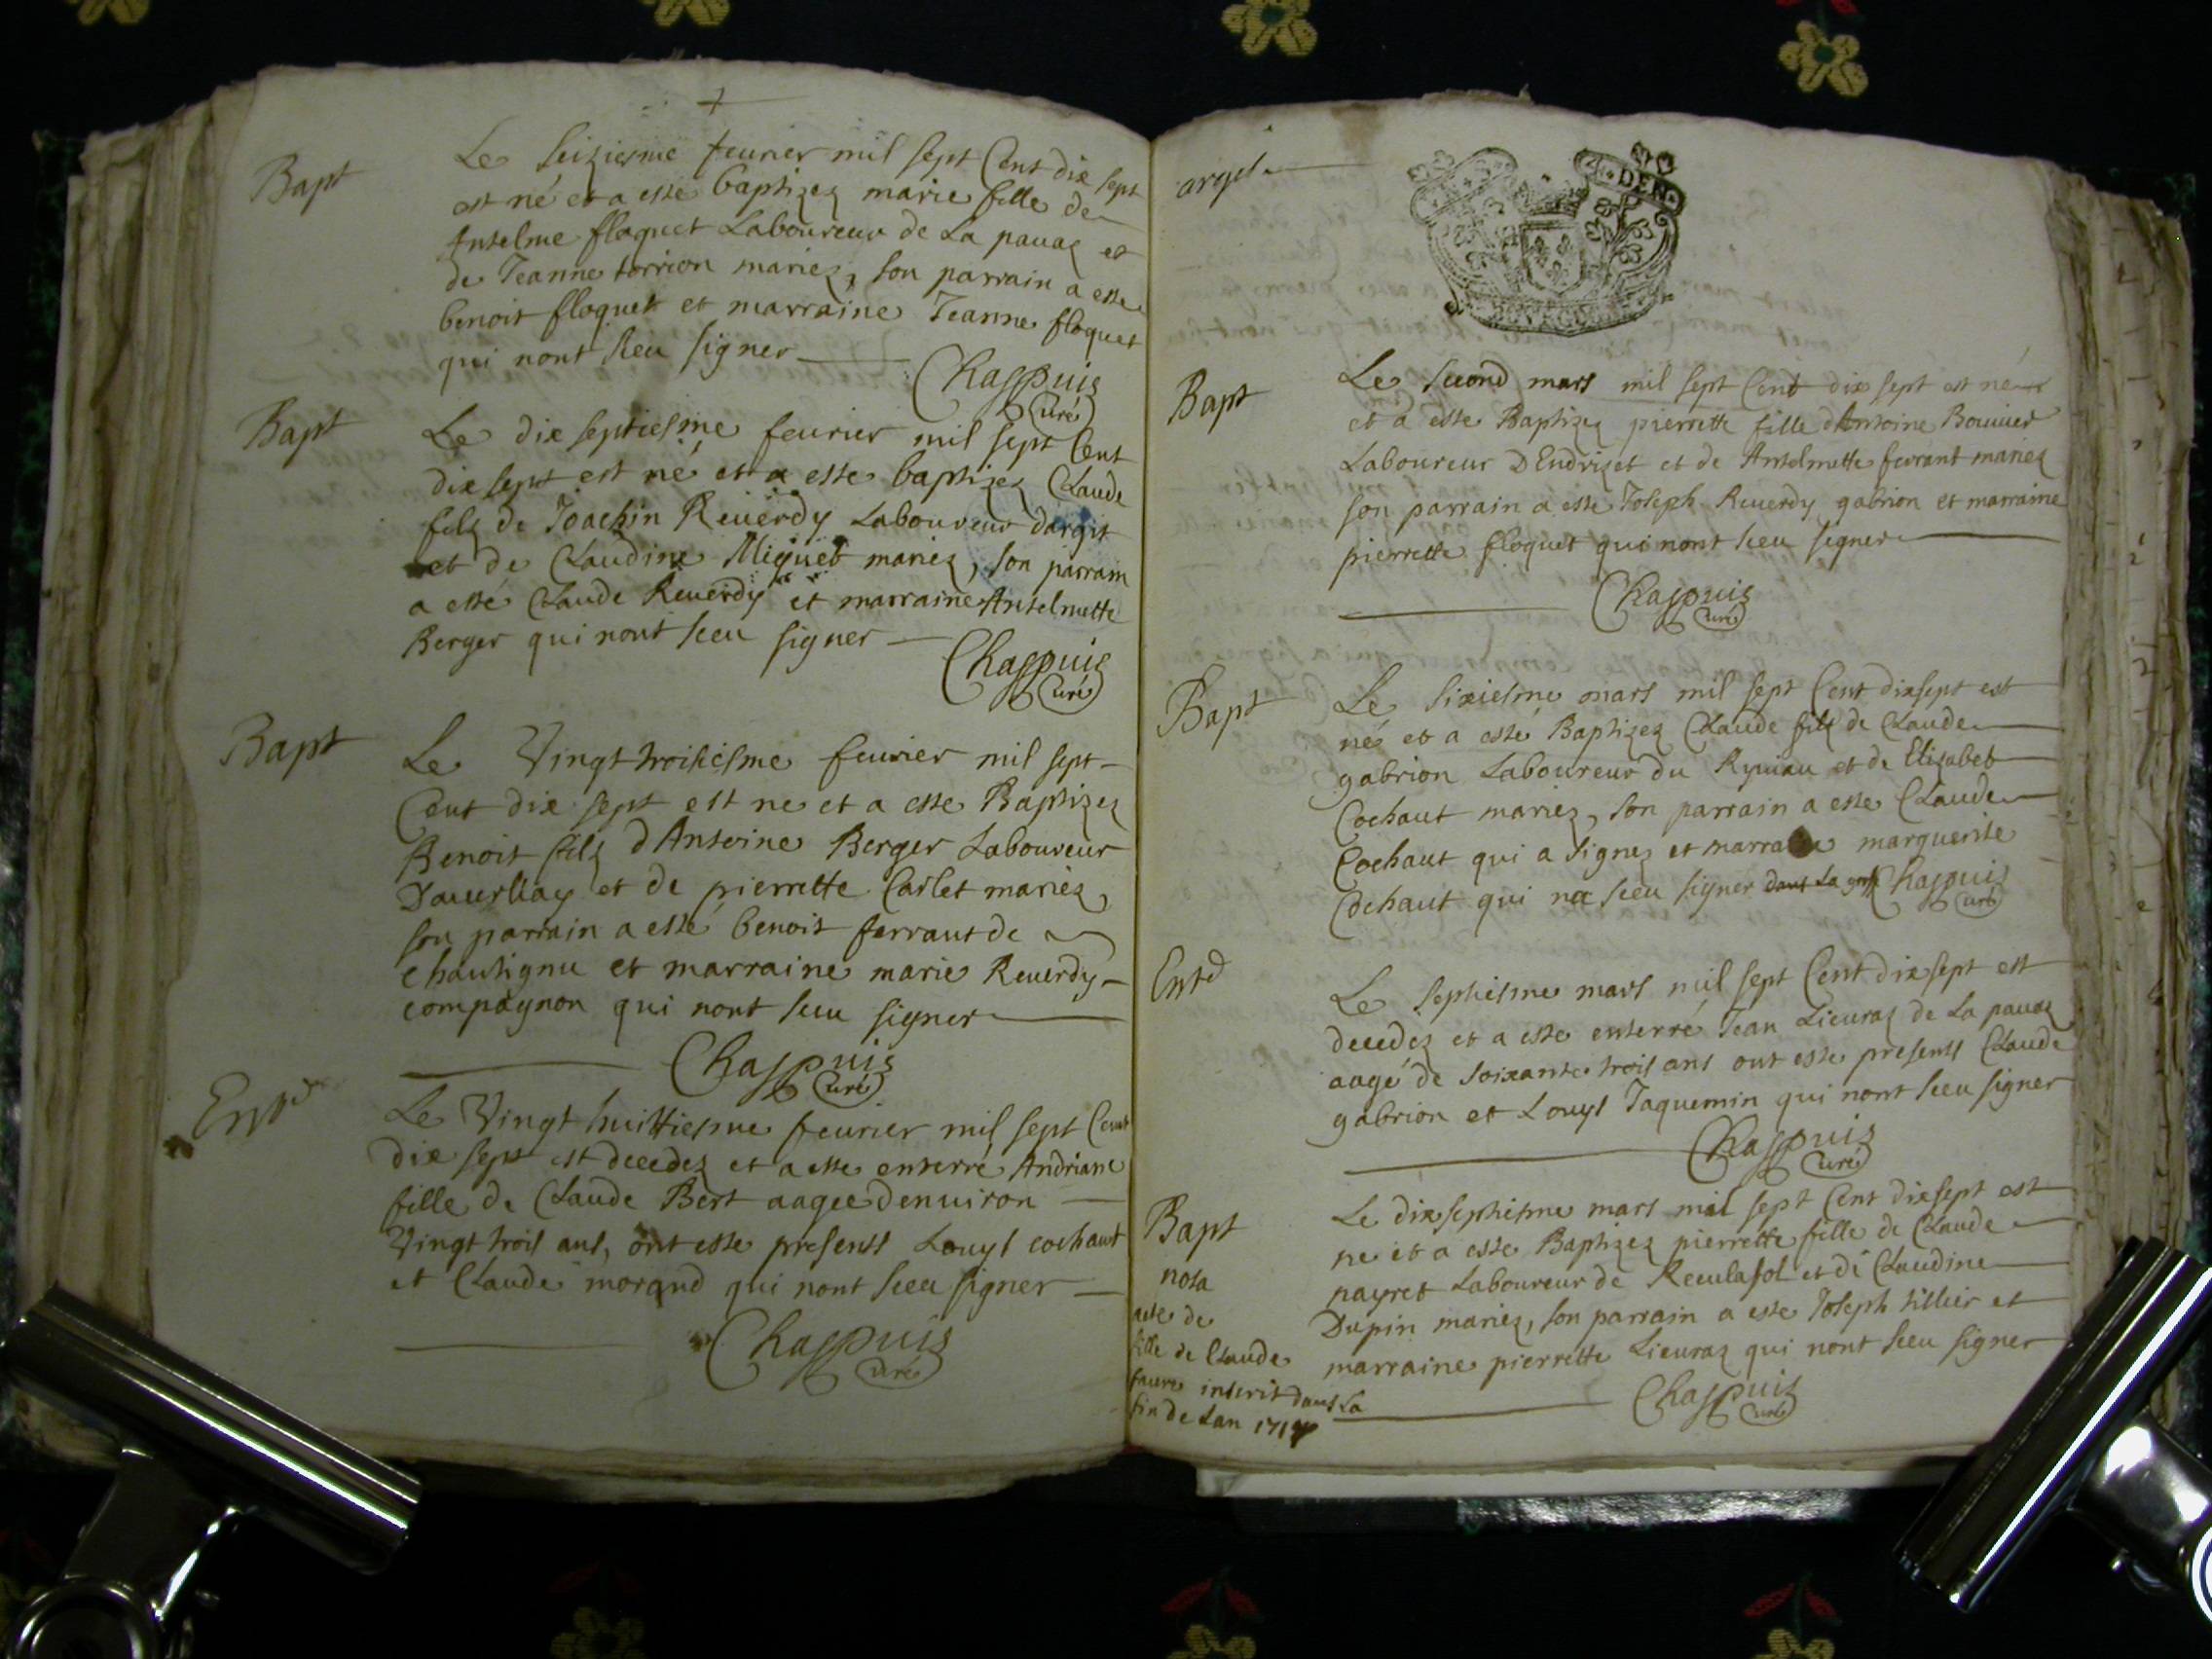 Bapt
Le seiziesme feurier mil sept Cent dix sept
est né et a esté baptizez marie fille de
Antelme floquet Laboureur de La pauaz et
de Jeanne torrion mariez, son parrain a este
benoit floquet et marraine Jeanne floquet
qui nont sceu signer
Chappuis
Curé
Bapt
Le dix septiesme feurier mil sept Cent
dix sept est né et a esté baptizez Claude
filz de Joachin Reuerdy Laboureur dargit
et de Claudine Miguet mariez, son parrain
a esté Claude Reuerdy et marraine Antelmette
Berger qui nont sceu signer
Chappuis
Curé
Bapt
Le Vingt troisiesme feurier mil sept
Cent dix sept est ne et a este Baptizez
Benoit filz dAntoine Berger Laboureur
et de pierrette Carlet mariez,
son parrain a esté benoit ferrant de
et marraine marie Reuerdy
compagnon qui nont sceu signer
Chappuis
Curé
Ent
Le Vingt huittiesme feurier mil sept Cent
dix sept est decedez et a este enterré Andriane
fille de Claude Bert aagee denuiron
Vingt trois ans, ont este presents Louys cochaut
et Claude morand qui nont sceu signer
Chappuis
Curé
DEN
Bapt
Le second mars mil sept Cent dix sept est née
et a este Baptizez pierrette fille dAntoine Bouuier
Laboureur DEndrizet et de Antelmette mariez
son parrain a este Joseph Reuerdy gabrion et marraine
pierrette floquet qui nont sceu signer
Chappuis
Curé
Bapt
Le sixiesme mars mil sept Cent dixsept est
né et a esté Baptizez Claude filz de Claude
gabrion Laboureur du et de Elizabet
Cochaut mariez, son parrain a este Claude
Cochaut qui a signez et marraine marguerite
Cochaut qui na sceu signer Chappuis
Curé
Ent
Le septiesme mars mil sept Cent dixsept est
decedez et a este enterré Jean Lieuraz de La pauaz
aagé de soixante trois ans ont este presents Claude
gabrion et Louys Jaquemin qui nont sceu signer
Chappuis
Curé
Bapt
Le dixseptiesme mars mil sept Cent dixsept est
ne et a este Baptizez pierrette fille de Claude
payret Laboureur de Reculafol et de Claudine
Dupin mariez, son parrain a este Joseph tillier et
marraine pierrette Lieuraz qui nont sceu signer
Chappuis
Curé
nota
acte de
fille de Claude
faure inscrit dans La
fin de Lan